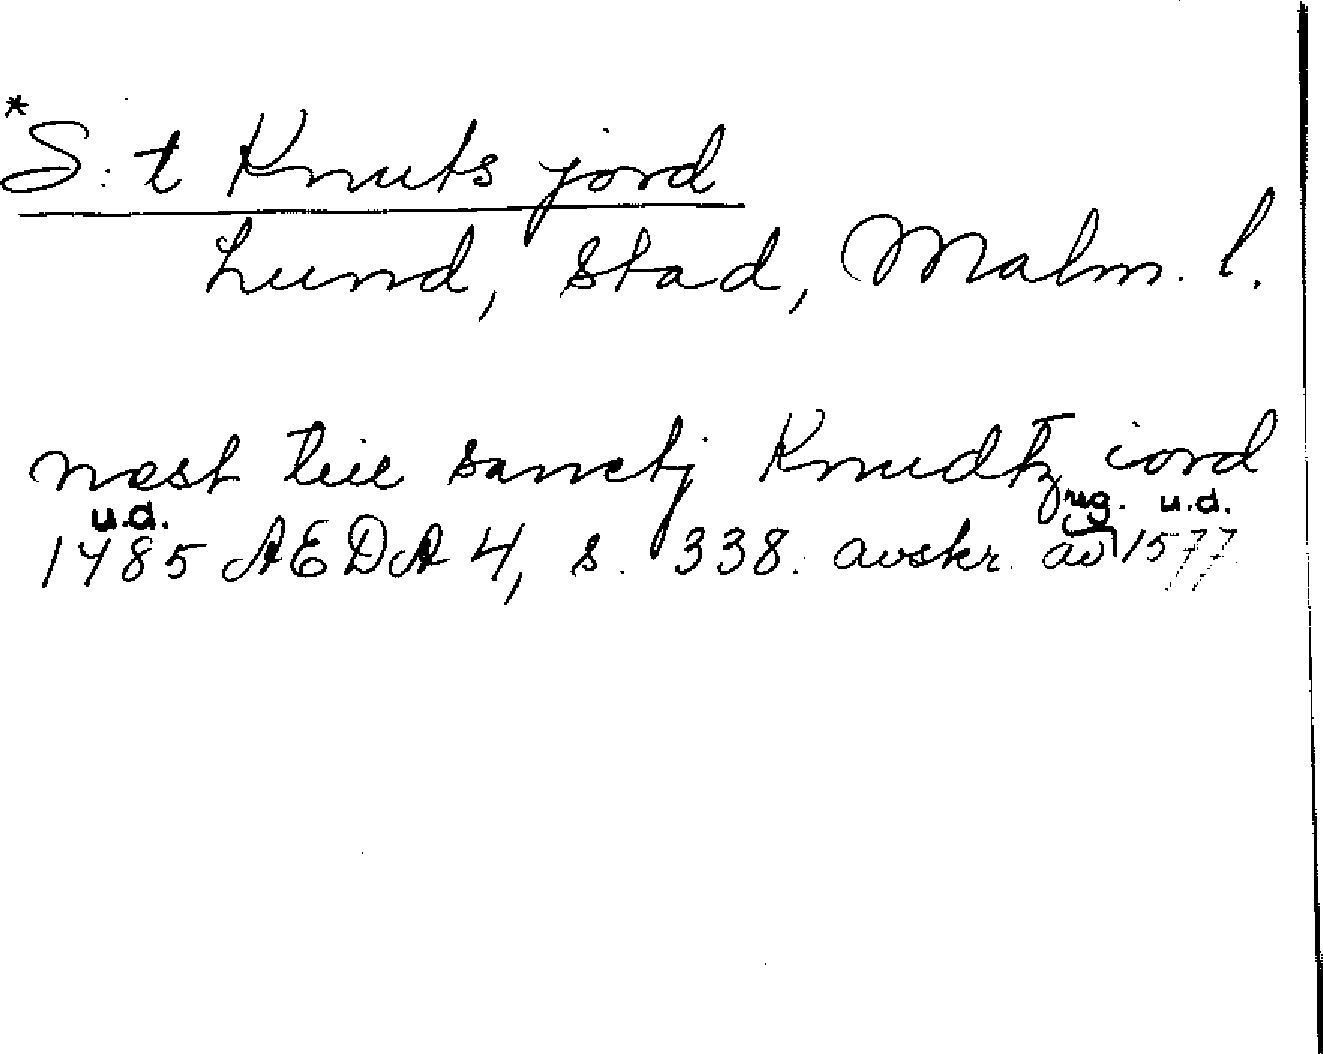 *S:t Knuts jord
Lund, stad, Malm. l.
næst tiil sanctj Knudtz iord
u.d. rug. u.d.
1485 AEDA 4, s. 338. avskr. av 1577